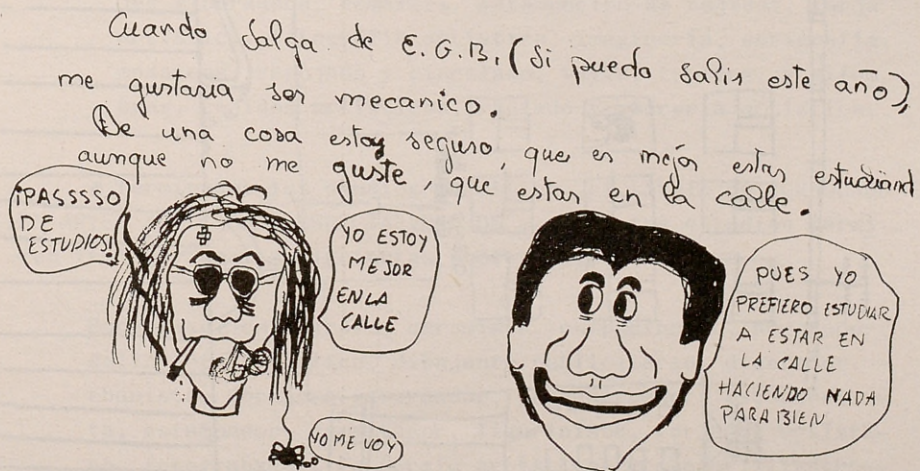 Cuando salga de E.G.B. (si puedo salir este año),
me gustaria ser mecanico.
De una cosa estoy seguro, que es mejor estar estudiand
aunque no me guste, que estar en la calle.
¡PASSSSO
DE
ESTUDIOS!
YO ESTOY
MEJOR
EN LA
CALLE
YO ME VOY
PUES YO
PREFIERO ESTUDIAR
A ESTAR EN
LA CALLE
HACIENDO NADA
PARA BIEN